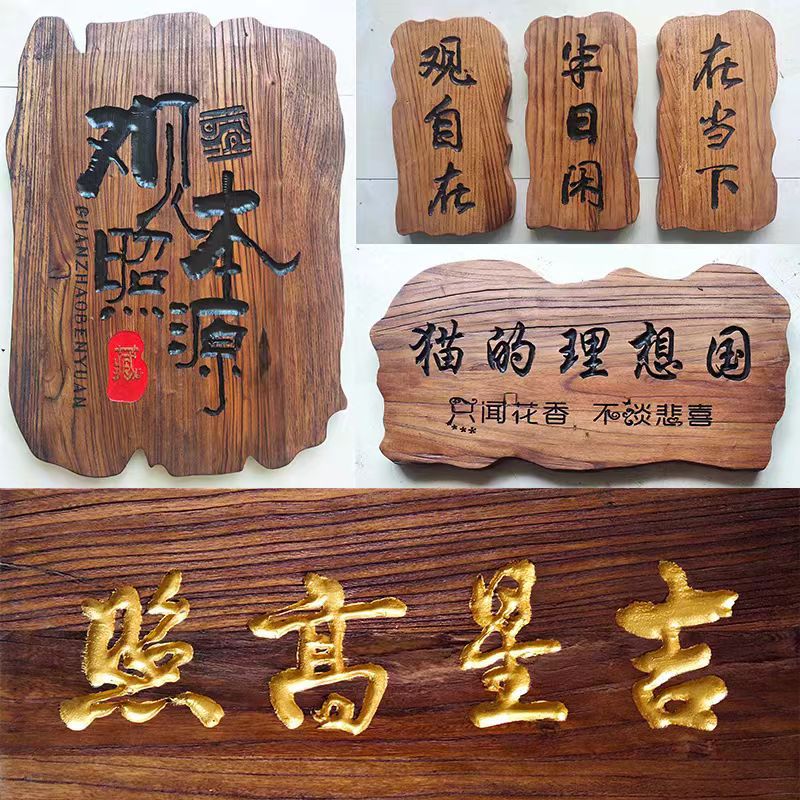 观照
本源
GUANZHAOBENYUAN
藏
观自在
半日闲
在当下
猫的理想国
只闻花香 不谈悲喜
吉星高照